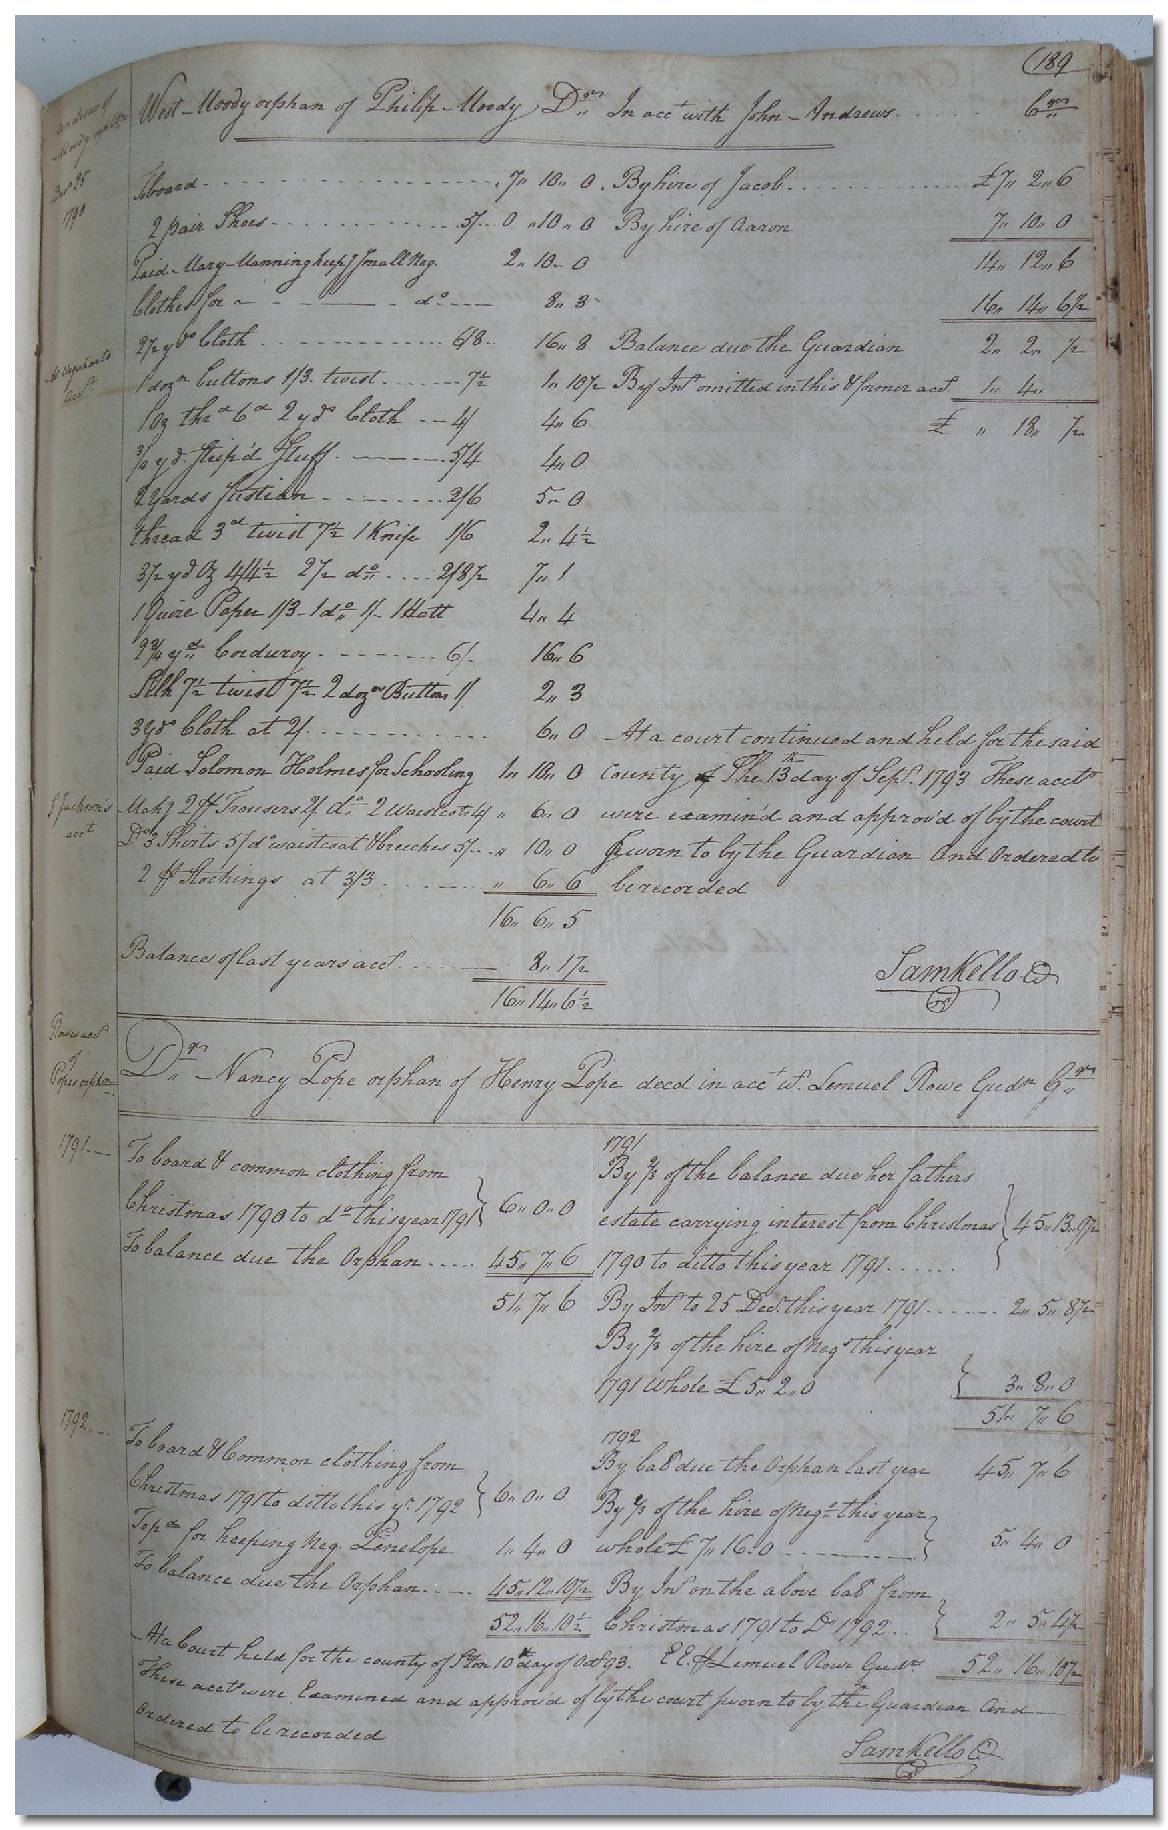 189
West Moody orphan of Philip Moody Drs In acct with John Andrews Crs
Andrews
Moody orphan
Decr 25
1790
To board 7" 10" 0 By hire of Jacob £7" 2" 6
2 pair Shoes 5/ 0 "10" 0 By hire of Aaron 7" 10" 0
Paid Mary Manning keepg Small Neg. 2" 10" 0 14" 12" 6
Clothes for do 8" 3 16" 14" 6½
2½ yds Cloth 6/8 16" 8 Balance due the Guardian 2" 2" ½
acct
1 dozn buttons 1/3 twist 7½ 1" 10½ By Int omitted in this & former acct 1" 4"
1 oz thrd 6d 2 yds Cloth 4/ 4" 6 £ " 18" ½
¾ yd Strip'd Stuff 5/4 4" 0
2 Yards fustian 2/6 5" 0
thread 3d twist 7½ 1 Knife 1/6 2" 4½
3½ yd Oz 4/4½ 2½ do 2/8½ 7" 1
1 Quire Paper 1/3 1 do 1/ 1 Hatt 4" 4
2¾ yds Corduroy 6/ 16" 6
Silk 7½ twist 7½ 2 dozn Buttons 1/ 2" 3
3 yds Cloth at 2/ 6" 0 At a court continued and held for the said
Paid Solomon Holmes for Schooling 1" 10" 0 County The 13th day of Sepr. 1793 These accts
S Jackson's
acct
Makg 2 pr Trousers 2/ do 2 Waistcots 4/ " 6" 0 were examin'd and approv'd of by the court
Do 3 Shirts 5/ do waistcoat & breeches 5/ " 10" 0 Sworn to by the Guardian And Ordered to
2 pr Stockings at 3/3 " 6" 6 be recorded
16" 6" 5
Balance of last years acct 8" 1½
16" 14" 6½
Sam Kello C
Rowes acct
of
Popes orphan
Drs Nancy Pope orphan of Henry Pope decd in acct wt. Lemuel Rowe Gudn Crs
1791
To board & common clothing from
Christmas 1790 to do this year 1791 6" 0" 0
To balance due the Orphan 45" 7" 6
51" 7" 6
1791
By ⅔ of the balance due her fathers
estate carrying interest from Christmas 45" 13" 9½
1790 to ditto this year 1791
By Int to 25 Decr. this year 1791 2" 5" 8½
By ⅔ of the hire of Negs this year
1791 Whole £5" 2" 0 3" 8" 0
51" 7" 6
1792
To board & Common clothing from
Christmas 1791 to ditto this yr. 1792 6" 0" 0
To pd for keeping Neg. Penelope 1" 4" 0
To balance due the Orphan 45" 12" 10½
52" 16" 10½
1792
By bal due the Orphan last year 45" 7" 6
By ⅔ of the hire of Negs this year
whole £7" 16" 0 5" 4" 0
By Int on the above bal from
Christmas 1791 to Do 1792 2" 5" 4½
E.E. pr Lemuel Rowe Gudn 52" 16" 10½
At a Court held for the county of Sºton 10th day of Octr 93.
These accts were Examined and approv'd of by the court sworn to by the Guardian And
Ordered to be recorded
Sam Kello C